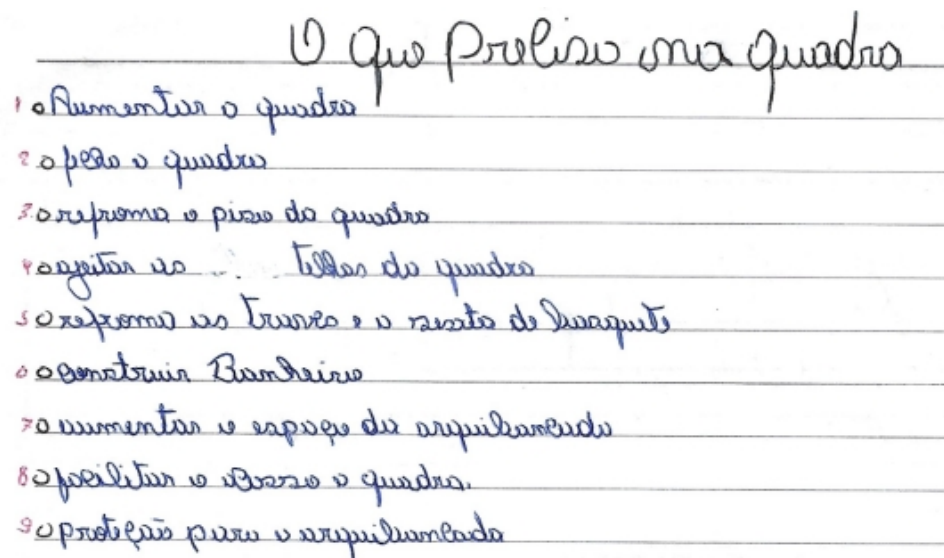 O que Preciso na quadra
1 o Aumentar a quadra
2 o peso a quadra
3 o refroma o piso da quadra
4 o ageitar as telhas da quadra
5 o refroma as traves e a sesta de basquete
6 o construir Banheiro
7 o aumentar o espaço da arquibancada
8 o facilitar o acesso a quadra.
9 o proteção para a arquibancada